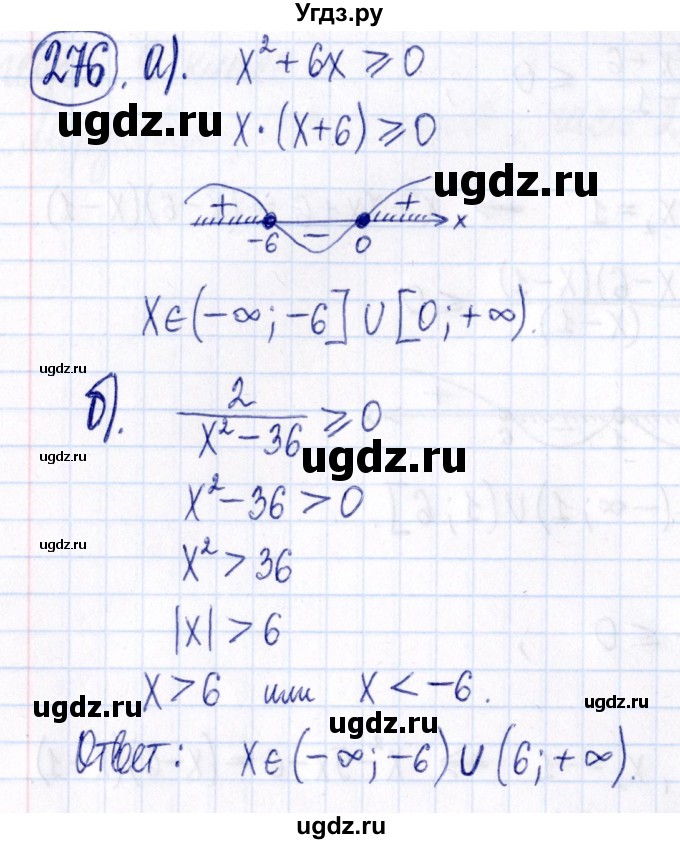 Угдз.ру
276. а). x² + 6x ⩾ 0
ugdz.ru
x·(x+6) ⩾ 0
ugdz.ru
+ − + x
-6 0
x∈(-∞; -6] ∪ [0; +∞).
ugdz.ru
б). 2/(x² − 36) ⩾ 0
ugdz.ru
ugdz.ru
x² − 36 > 0
ugdz.ru
x² > 36
|x| > 6
x > 6 или x < −6.
ugdz.ru
ugdz.ru
ugdz.ru
Ответ: x∈(-∞; -6) ∪ (6; +∞).
ugdz.ru
ugdz.ru